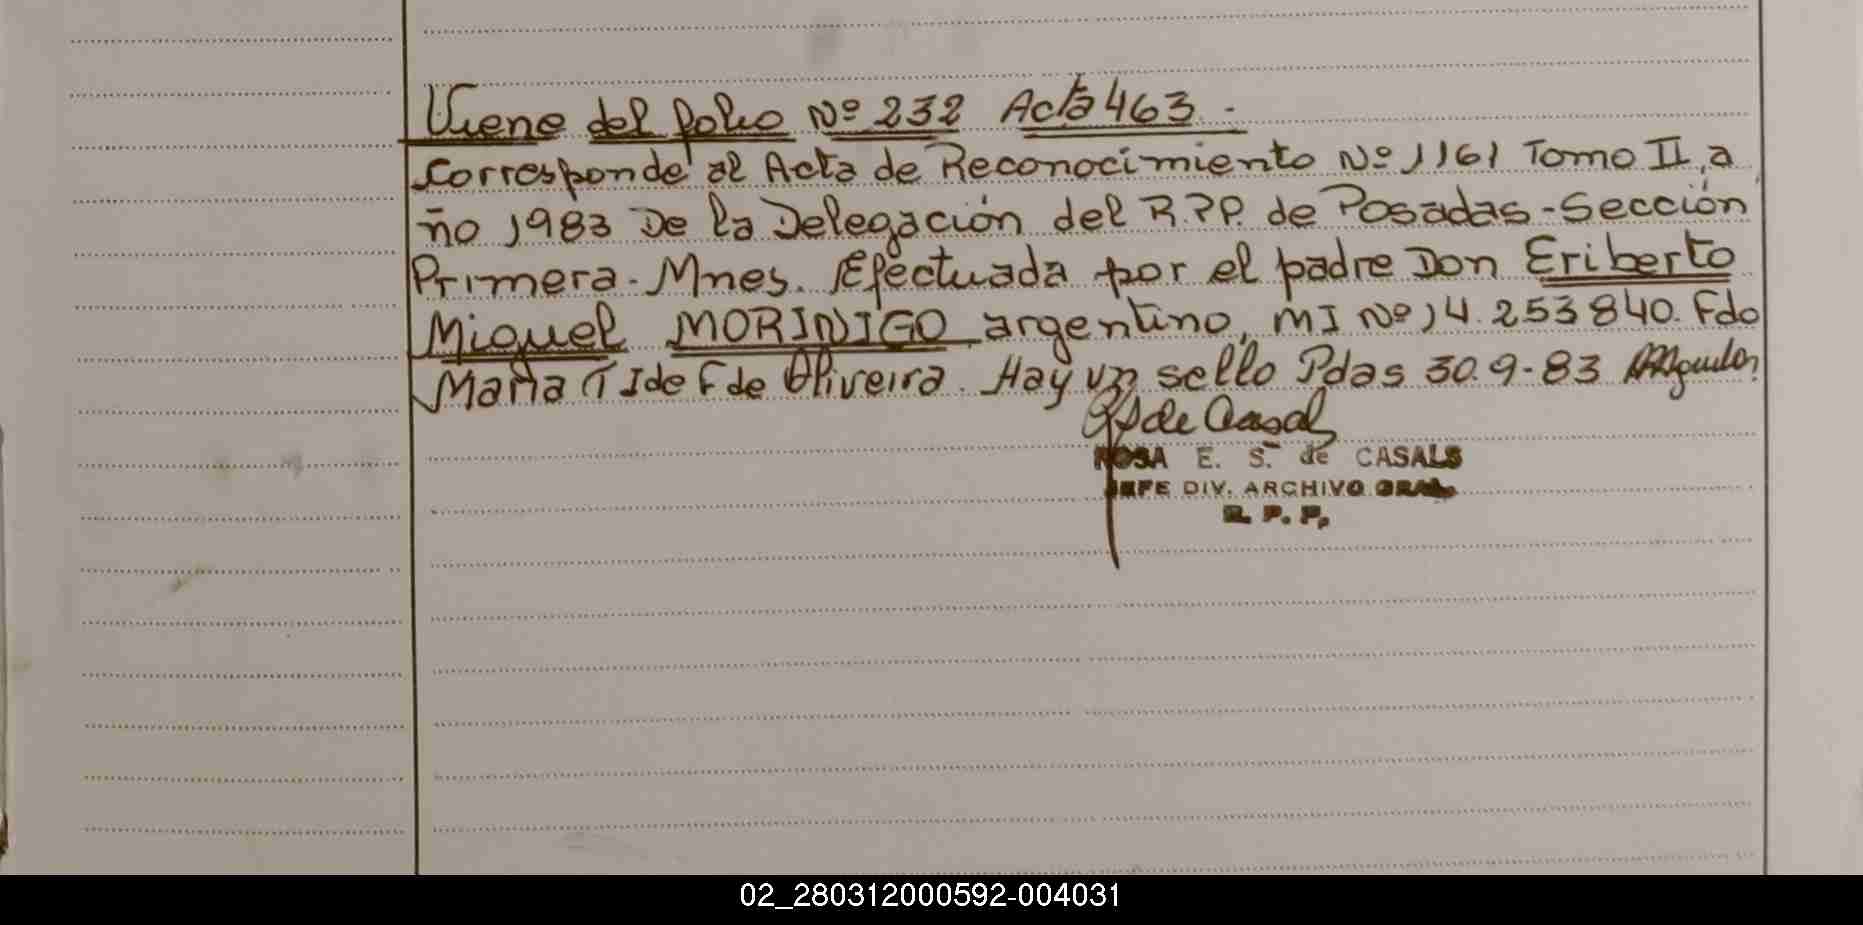 Viene del folio Nº 232 Acta 463.-
Corresponde al Acta de Reconocimiento Nº 1161 Tomo II, a
ño 1983 De la Delegación del R.P.P. de Posadas-Sección
Primera-Mnes. Efectuada por el padre Don Eriberto
Miguel MORINIGO argentino, MI Nº 14.253840. Fdo
Maria T I de F de Oliveira. Hay un sello Pdas 30.9-83
de Casals
ROSA E. S. de CASALS
JEFE DIV. ARCHIVO GRAL.
R. P. P.
02_280312000592-004031